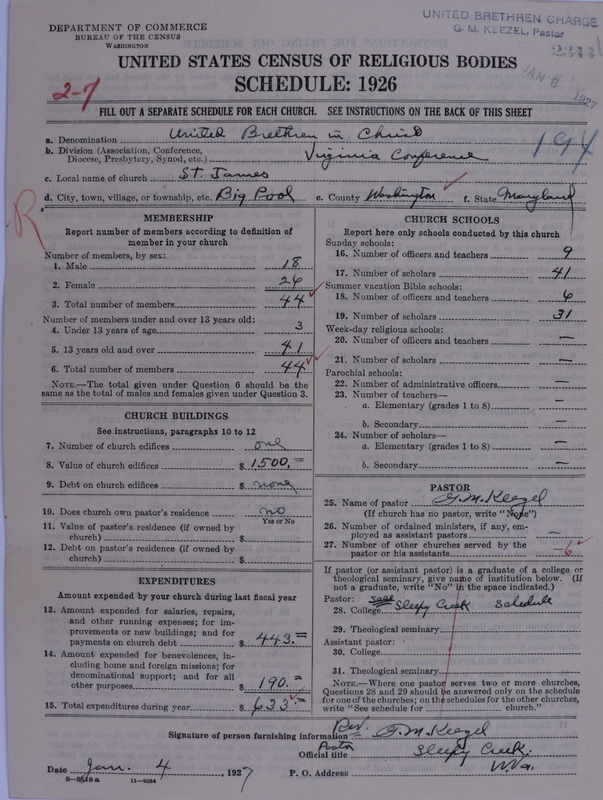 DEPARTMENT OF COMMERCE
BUREAU OF THE CENSUS
WASHINGTON
UNITED BRETHREN CHARGE
G. M. KEEZEL, Pastor
JAN 6 1927
UNITED STATES CENSUS OF RELIGIOUS BODIES
SCHEDULE: 1926
2-7
FILL OUT A SEPARATE SCHEDULE FOR EACH CHURCH. SEE INSTRUCTIONS ON THE BACK OF THIS SHEET
a. Denomination United Brethren in Christ
194
b. Division (Association, Conference,
Diocese, Presbytery, Synod, etc.) Virginia Conference
c. Local name of church St. James
d. City, town, village, or township, etc. Big Pool e. County Washington f. State Maryland
R
MEMBERSHIP
Report number of members according to definition of
member in your church
Number of members, by sex:
1. Male 18
2. Female 26
3. Total number of members 44
Number of members under and over 13 years old:
4. Under 13 years of age 3
5. 13 years old and over 41
6. Total number of members 44
NOTE.—The total given under Question 6 should be the
same as the total of males and females given under Question 3.
CHURCH BUILDINGS
See instructions, paragraphs 10 to 12
7. Number of church edifices one
8. Value of church edifices $ 1500.=
9. Debt on church edifices $ none
10. Does church own pastor's residence no
Yes or No
11. Value of pastor's residence (if owned by
church) $
12. Debt on pastor's residence (if owned by
church) $
EXPENDITURES
Amount expended by your church during last fiscal year
13. Amount expended for salaries, repairs,
and other running expenses; for im-
provements or new buildings; and for
payments on church debt $ 443.=
14. Amount expended for benevolences, in-
cluding home and foreign missions; for
denominational support; and for all
other purposes $ 190.=
15. Total expenditures during year $ 633.=
CHURCH SCHOOLS
Report here only schools conducted by this church
Sunday schools:
16. Number of officers and teachers 9
17. Number of scholars 41
Summer vacation Bible schools:
18. Number of officers and teachers 6
19. Number of scholars 31
Week-day religious schools:
20. Number of officers and teachers —
21. Number of scholars —
Parochial schools:
22. Number of administrative officers —
23. Number of teachers—
a. Elementary (grades 1 to 8) —
b. Secondary —
24. Number of scholars—
a. Elementary (grades 1 to 8) —
b. Secondary —
PASTOR
25. Name of pastor G. M. Keezel
(If church has no pastor, write "None")
26. Number of ordained ministers, if any, em-
ployed as assistant pastors —
27. Number of other churches served by the
pastor or his assistants 6
If pastor (or assistant pastor) is a graduate of a college or
theological seminary, give name of institution below. (If
not a graduate, write "No" in the space indicated.)
Pastor:
28. College Sleepy Creek Schedule
29. Theological seminary
Assistant pastor:
30. College
31. Theological seminary
NOTE.—Where one pastor serves two or more churches,
Questions 28 and 29 should be answered only on the schedule
for one of the churches; on the schedules for the other churches,
write "See schedule for ............ church."
Signature of person furnishing information Rev. G. M. Keezel
Official title Pastor Sleepy Creek,
Date Jan. 4, 1927 P. O. Address W. Va.
8-5518 a 11-9054